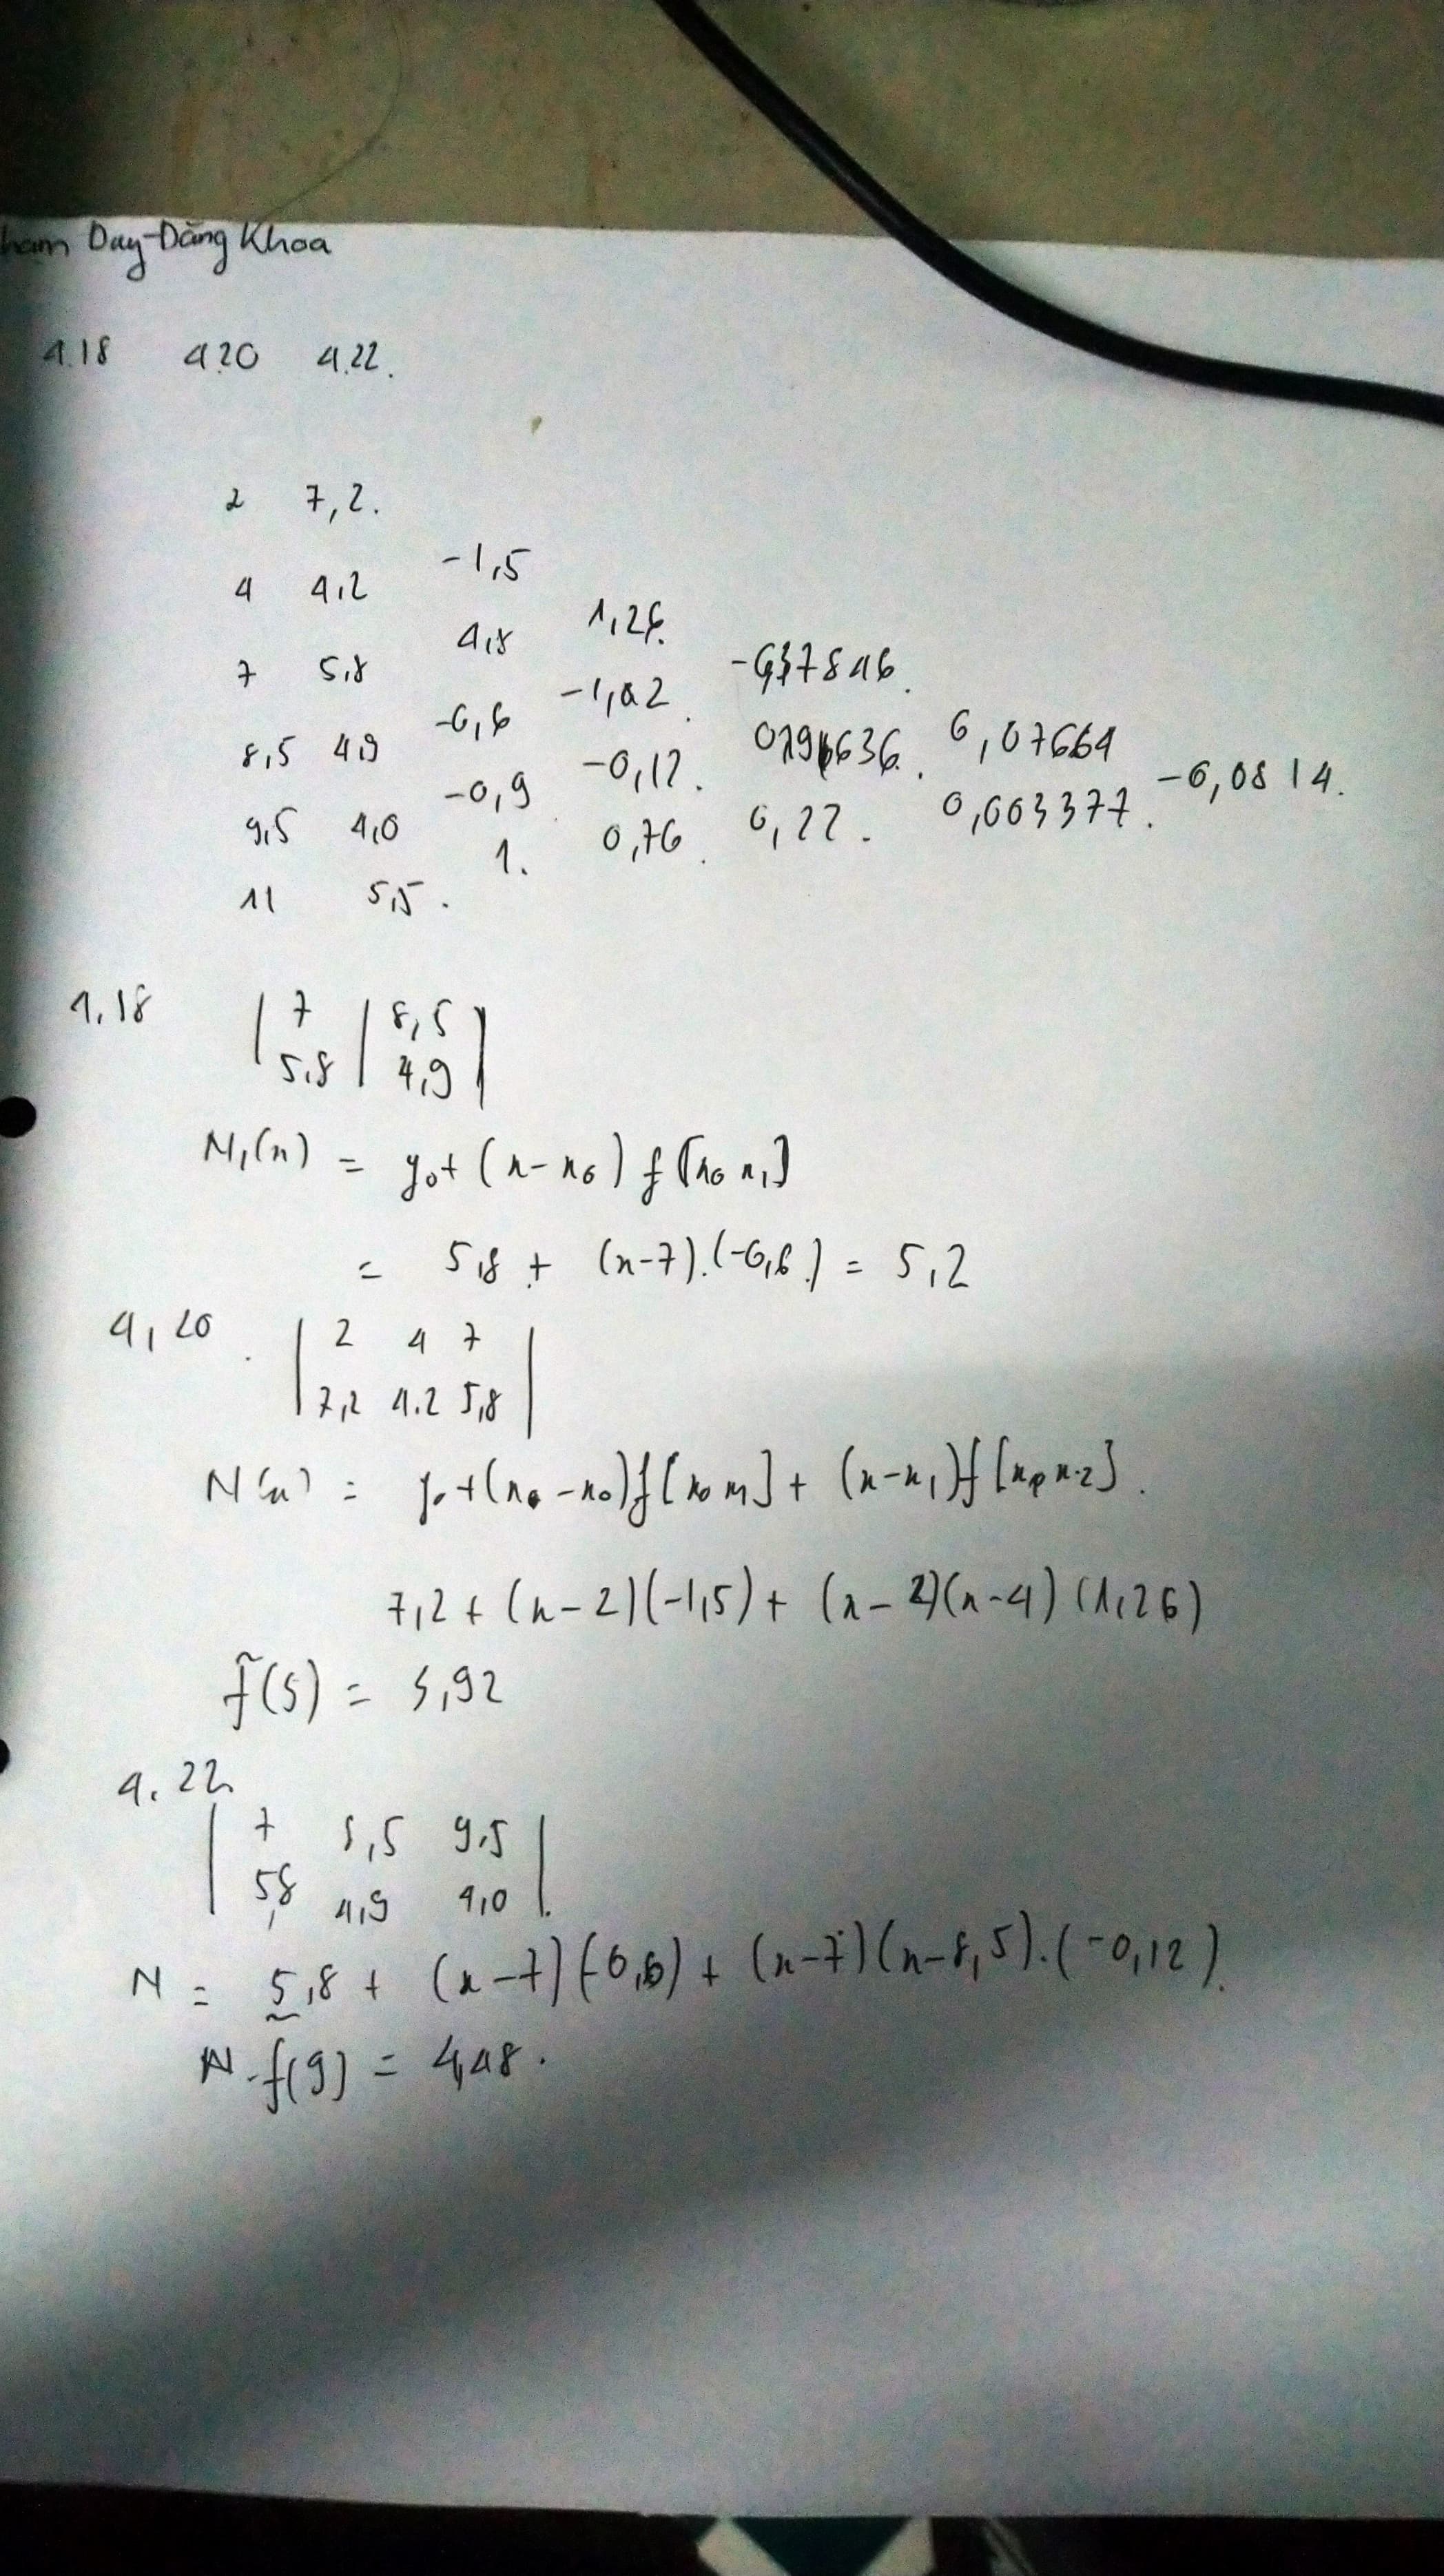 ham Duy-Đăng Khoa
4.18 4.20 4.22.
2 7,2.
-1,5
4 4,2
4,8 1,26.
7 5,8
-1,02.
-0,6
8,5 4,9
-0,12. 0,07664
-0,9 -0,0814.
9,5 4,0
0,76. 0,22. 0,003377.
1.
11 5,5.
4.18 | 7 | 8,5 |
5,8 | 4,9
N₁(x) = y₀+ (x-x₀) f[x₀ x₁]
= 5,8 + (x-7).(-0,6.) = 5,2
4,20. | 2 4 7 |
7,2 4.2 5,8
N(x) = y₀+(x₀-x₀)f[x₀ x₁] + (x-x₁)f[x₀ x₂].
7,2 + (x-2)(-1,5) + (x-2)(x-4) (1,26)
f̃(5) = 5,92
4.22.
| 7 8,5 9,5 |
5,8 4,9 4,0
N = 5,8 + (x-7)(-0,6) + (x-7)(x-8,5).(-0,12).
N f̃(9) = 4,48.